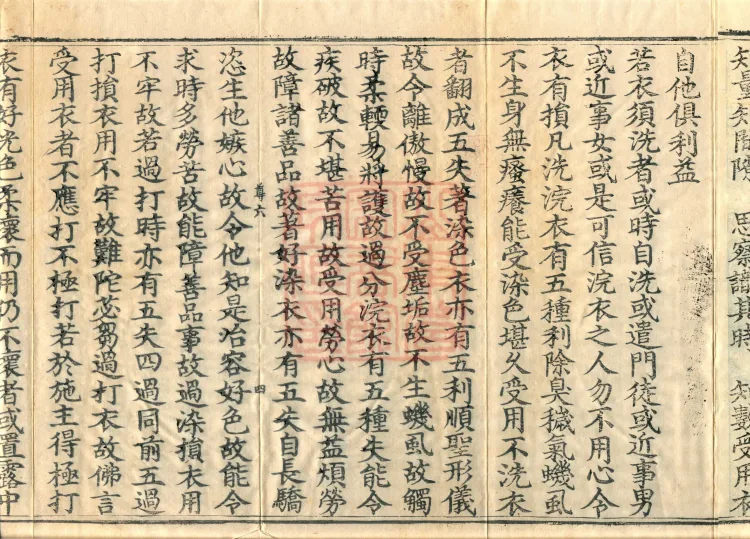 知量知間隙　思察諸其時　知數受用衣
自他俱利益
若衣須洗者或時自洗或遣門徒或近事男
或近事女或是可信浣衣之人勿不用心令
衣有損凡洗浣衣有五種利除臭穢氣蟣虱
不生身無瘙癢能受染色堪久受用不洗衣
者翻成五失著染色衣亦有五利順聖形儀
故令離傲慢故不受塵垢故不生蟣虱故觸
時柔輭易將護故過分浣衣有五種失能令
疾破故不堪苦用故受用勞心故無益煩勞
故障諸善品故著好染衣亦有五失自長驕
尊六　四
恣生他嫉心故令他知是冶容好色故能令
求時多勞苦故能障善品事故過染損衣用
不牢故若過打時亦有五失四過同前五過
打損衣用不牢故難陀苾芻過打衣故佛言
受用衣者不應打不極打若於施主得極打
衣有好光色柔壞而用仍不壞者或置露中